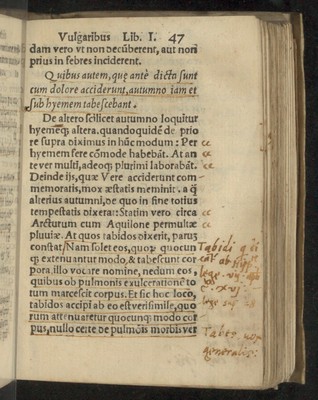 Vulgaribus Lib. I. 47
dam vero vt non decũberent, aut non
prius in febres inciderent.
Quibus autem, quę antè dicta sunt
cum dolore acciderunt, autumno iam et
sub hyemem tabescebant.
De altero scilicet autumno loquitur
hyemeq; altera. quandoquidẽ de prio
re supra diximus in hũc modum: Per
hyemem fere cõmode habebãt. At an
te ver multi, adeoq; plurimi laborabãt.
Deinde ijs, quæ Vere acciderunt com-
memoratis, mox æstatis meminit. a q̃
alterius autumni, de quo in fine totius
tempestatis dixerat: Statim vero circa
Arcturum cum Aquilone permultæ
pluuiæ. At quos tabidos dixerit, parũ
constat. Nam solet eos, quoꝝ quocun
q; extenuantur modo, & tabescunt cor
pora, illo vocare nomine, nedum eos,
quibus ob pulmonis exulceratione to
tum marcescit corpus. Et sic hoc loco,
tabidos accipi ab eo est verisimile, quo
rum attenuaretur quocunq; modo cor
pus, nullo certe de pulmõis morbis ver
Tabidi
ab
lege
lege
Tabes
generaliter